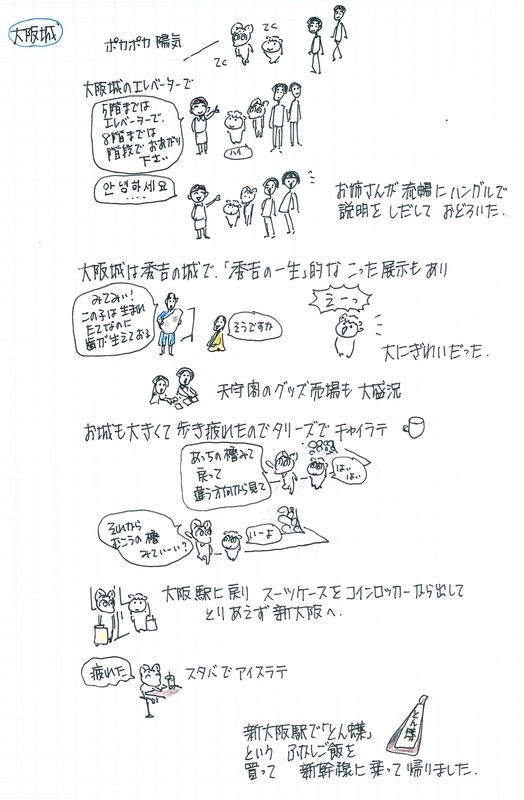 大阪城
ポカポカ 陽気
てく
てく
大阪城のエレベーターで
5階までは
エレベーターで、
8階までは
階段でおあがり
下さい
ハイ
안녕하세요
....
お姉さんが流暢にハングルで
説明をしだしておどろいた.
大阪城は秀吉の城で、「秀吉の一生」的な こった展示もあり
みてみい!
この子は生まれ
たてなのに
歯が生えておる
そうですか
えーっ
大にぎわいだった.
天守閣のグッズ売場も 大盛況
お城も大きくて 歩き疲れたのでタリーズで チャイラテ
あっちの櫓みて
戻って
違う方向から見て
はい
はい
それから
むこうの櫓
みていーい?
いーよ
大阪駅に戻り スーツケースをコインロッカーから出して
とりあえず新大阪へ.
疲れた
スタバでアイスラテ
とん蝶
新大阪駅で「とん蝶」
という
ご飯を
買って 新幹線に乗って帰りました.